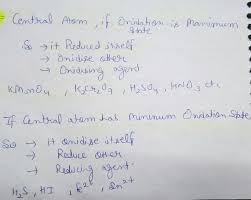 Central Atom, if Oxidation is Maximum
state
So → it Reduced itself
→ Oxidise other
→ Oxidising agent
KMnO4, K2Cr2O7, H2SO4, HNO3 etc
If Central atom has Minimum Oxidation State
So → It Oxidise itself
→ Reduce other
→ Reducing agent.
H2S, HI, Sn2+